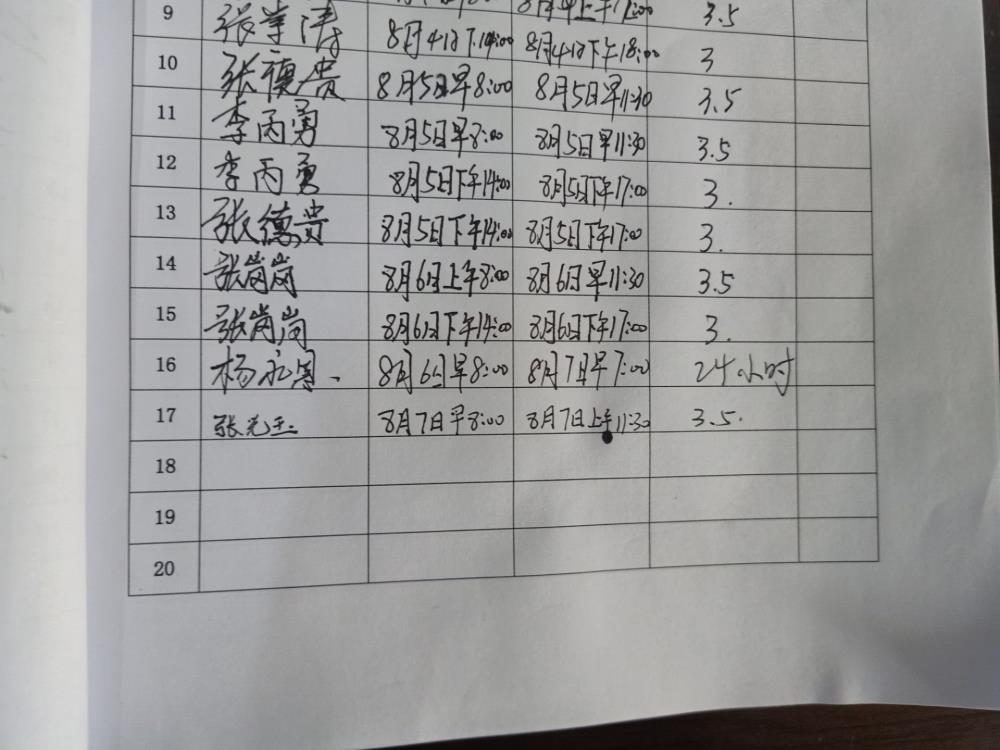 9 3.5
张 涛 8月4日下14:00 8月4日下午18:00 3
10 张德贵 8月5日早8:00 8月5日早11:30 3.5
11 李丙勇 8月5日早8:00 8月5日早11:30 3.5
12 李丙勇 8月5日下午14:00 8月5日下午17:00 3.
13 张德贵 8月5日下午14:00 8月5日下午17:00 3.
14 张岗岗 8月6日上午8:00 8月6日早11:30 3.5
15 张岗岗 8月6日下午14:00 8月6日下午17:00 3.
16 杨永 8月6日早8:00 8月7日早7:00 24小时
17 张 8月7日早8:00 8月7日上午11:30 3.5.
18
19
20